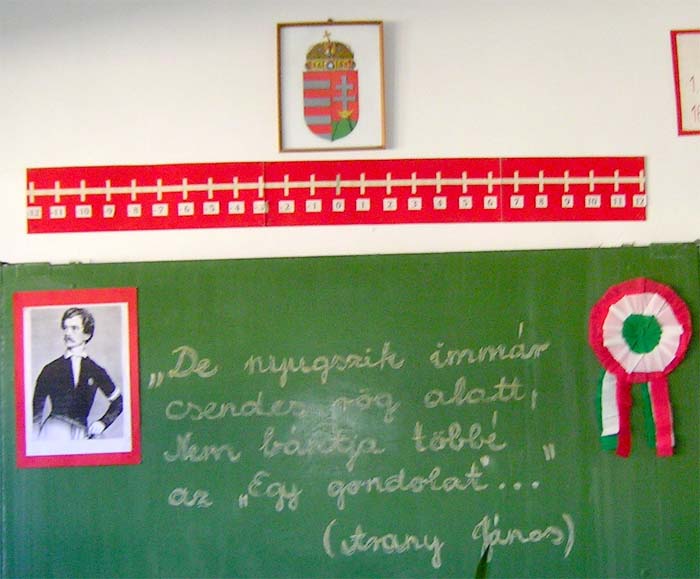 -12 -11 -10 -9 -8 -7 -6 -5 -4 -3 -2 -1 0 1 2 3 4 5 6 7 8 9 10 11 12
„De nyugszik immár
csendes rög alatt,
Nem bántja többé
az „Egy gondolat"..."
(Arany János)